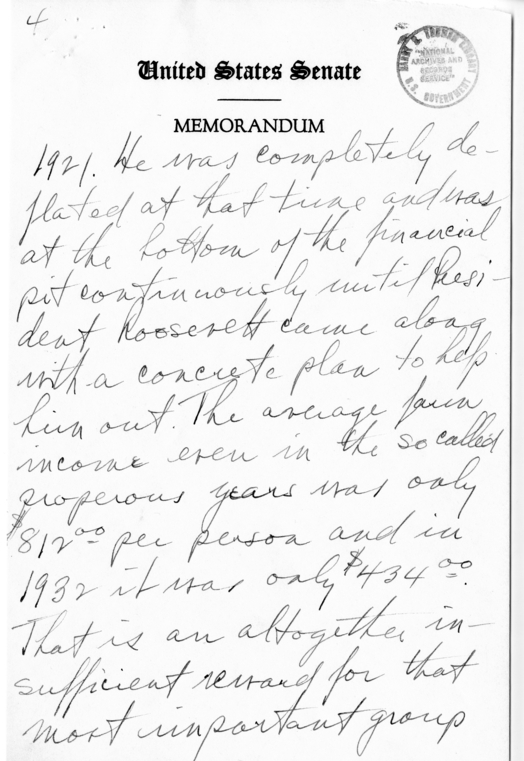 4
United States Senate
MEMORANDUM
HARRY S. TRUMAN LIBRARY
"NATIONAL
ARCHIVES AND
RECORDS
SERVICE"
U.S. GOVERNMENT
1921. He was completely de-
flated at that time and was
at the bottom of the financial
pit continuously until Presi-
dent Roosevelt came along
with a concrete plan to help
him out. The average farm
income even in the so called
properous years was only
$812.00 per person and in
1932 it was only $434.00.
That is an altogether in-
sufficient reward for that
most important group